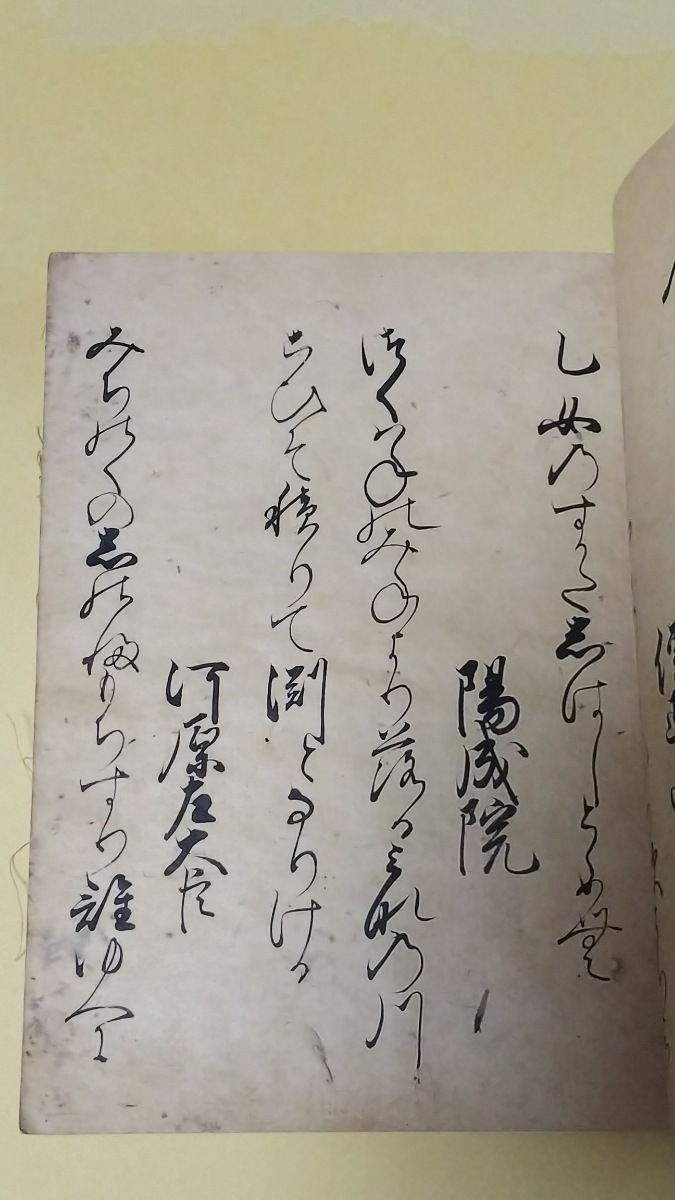 乙女のすかたしはしとゝめむ
陽成院
つくはねのみねより落るみなの川
こひそ積りて淵となりける
河原左大臣
みちのくのしのふもちすり誰ゆへに